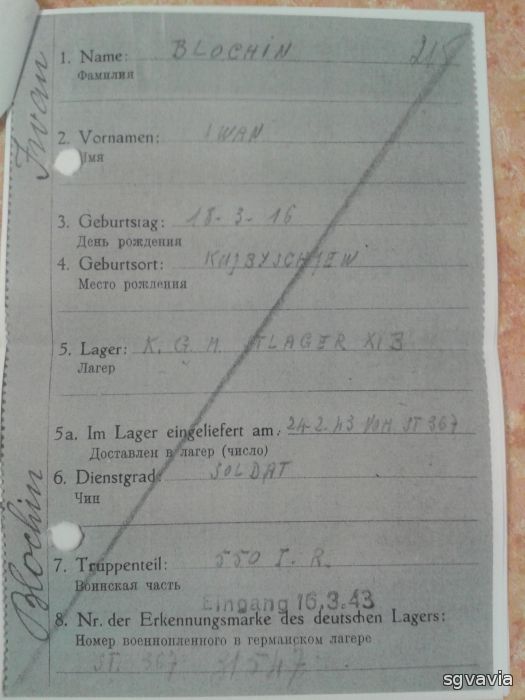 Iwan
Blochin
1. Name: BLOCHIN 215
Фамилия
2. Vornamen: IWAN
Имя
3. Geburtstag: 18.3.16
День рождения
4. Geburtsort: KUJBYSCHJEW
Место рождения
5. Lager: K. G. M. STLAGER XI B
Лагер
5a. Im Lager eingeliefert am: 24.2.43 VOM ST 367
Доставлен в лагер (число)
6. Dienstgrad: SOLDAT
Чин
7. Truppenteil: 550 I. R.
Воинская часть
Eingang 16.3.43
8. Nr. der Erkennungsmarke des deutschen Lagers:
Номер военнопленного в германском лагере
ST. 367 31547
sgvavia